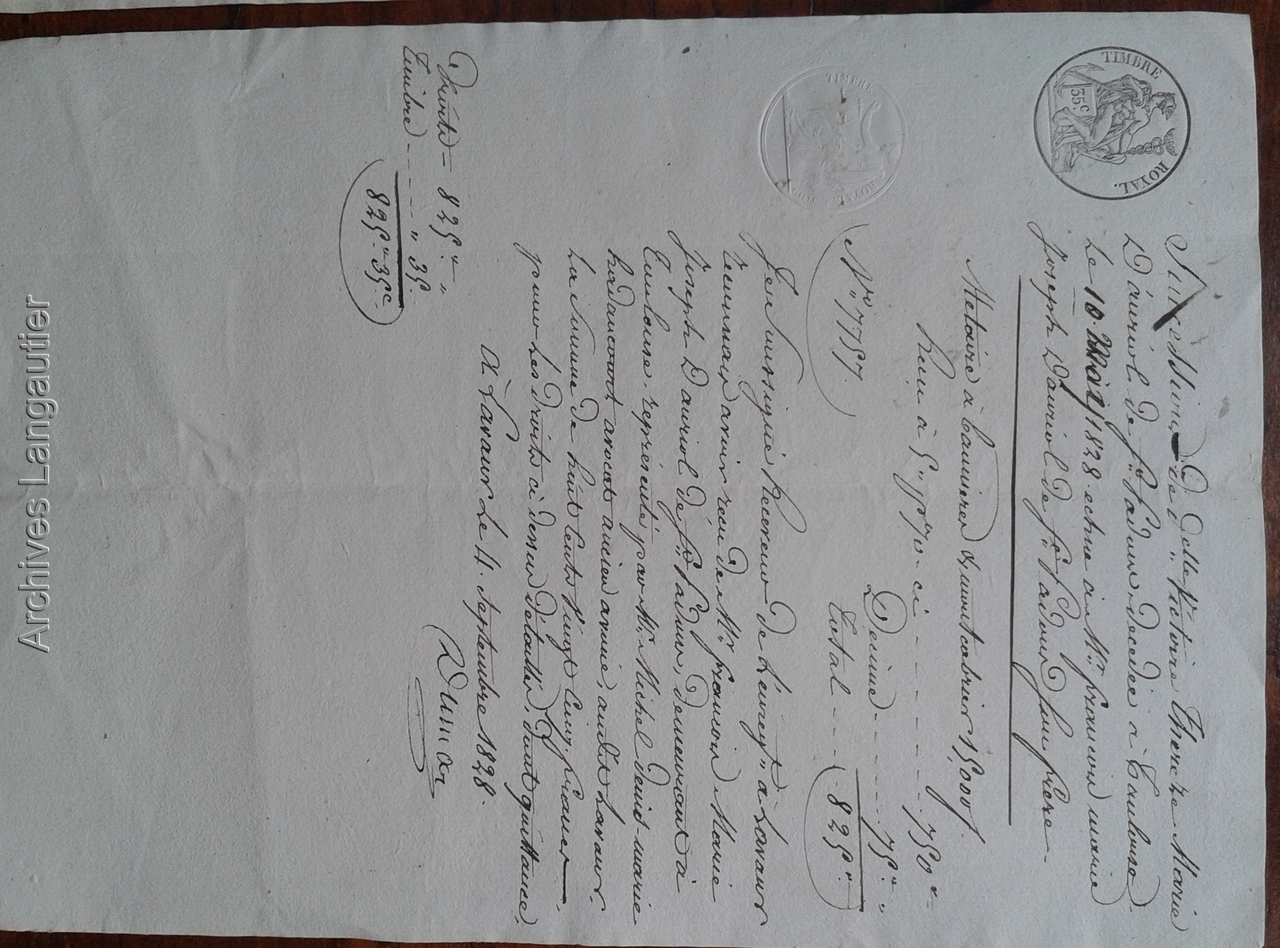 TIMBRE ROYAL.
35c.
TIMBRE ROYAL
Succession de Delle Victoire Therèze Marie
D'auriol de St. Ladurn decedée à Toulouse
Le 10 Mai 1828 echue à Mr. françois marie
joseph D'auriol de St. Ladurn Son frere
Metairie à 15,000f.
Reçu à 5 p. %. ci - - - - - - - 750 " "
Decime - - - - - 75 " "
Total - - - 825 "
No. 7757.
Je Soussigné Receveur de L'enregt. à Lavaur
reconnais avoir reçu de Mr. françois Marie
Joseph Dauriol de St. Ladurn, demeurant à
Toulouse représenté par Mr. Michel Denis-marie
avocat ancien avoué, audit Lavaur.
La Somme de huit Cents Vingt Cinq francs
pour les droits ci dessus détaillés, dont quittance,
à Lavaur Le 4. Septembre 1828.
Dumas
Droits = 825 " "
Timbre - - - - - " 35.
825 " 35c.
Archives Langautier